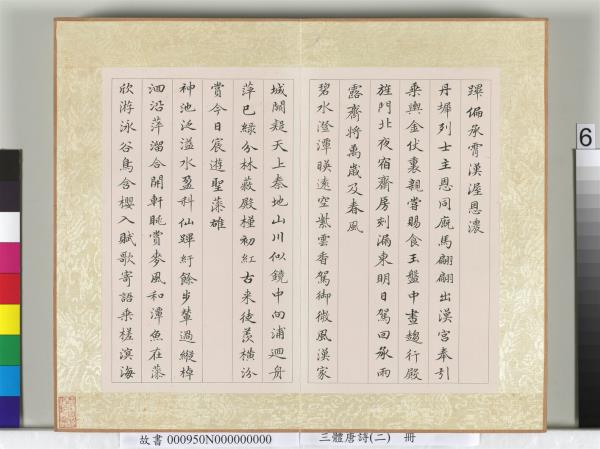 蹕偏承霄漢渥恩濃
丹墀列士主恩同廐馬翩翩出漢宮奉引
乘輿金伏裏親嘗賜食玉盤中晝趨行殿
旌門北夜宿齋房刻漏東明日駕回承雨
露齋將萬歲及春風
碧水澄潭暎遠空紫雲香駕御微風漢家
城闕疑天上秦地山川似鏡中向浦迴舟
萍已綠分林蔽殿槿初紅古來徒羨橫汾
賞今日宸遊聖藻雄
神池泛溢水盈科仙蹕紆餘步輦過縱棹
洄沿萍溜合開軒眺賞麥風和潭魚在藻
欣游泳谷鳥含櫻入賦歌寄語乘槎溟海
故書 000950N000000000
三體唐詩(二) 冊
6